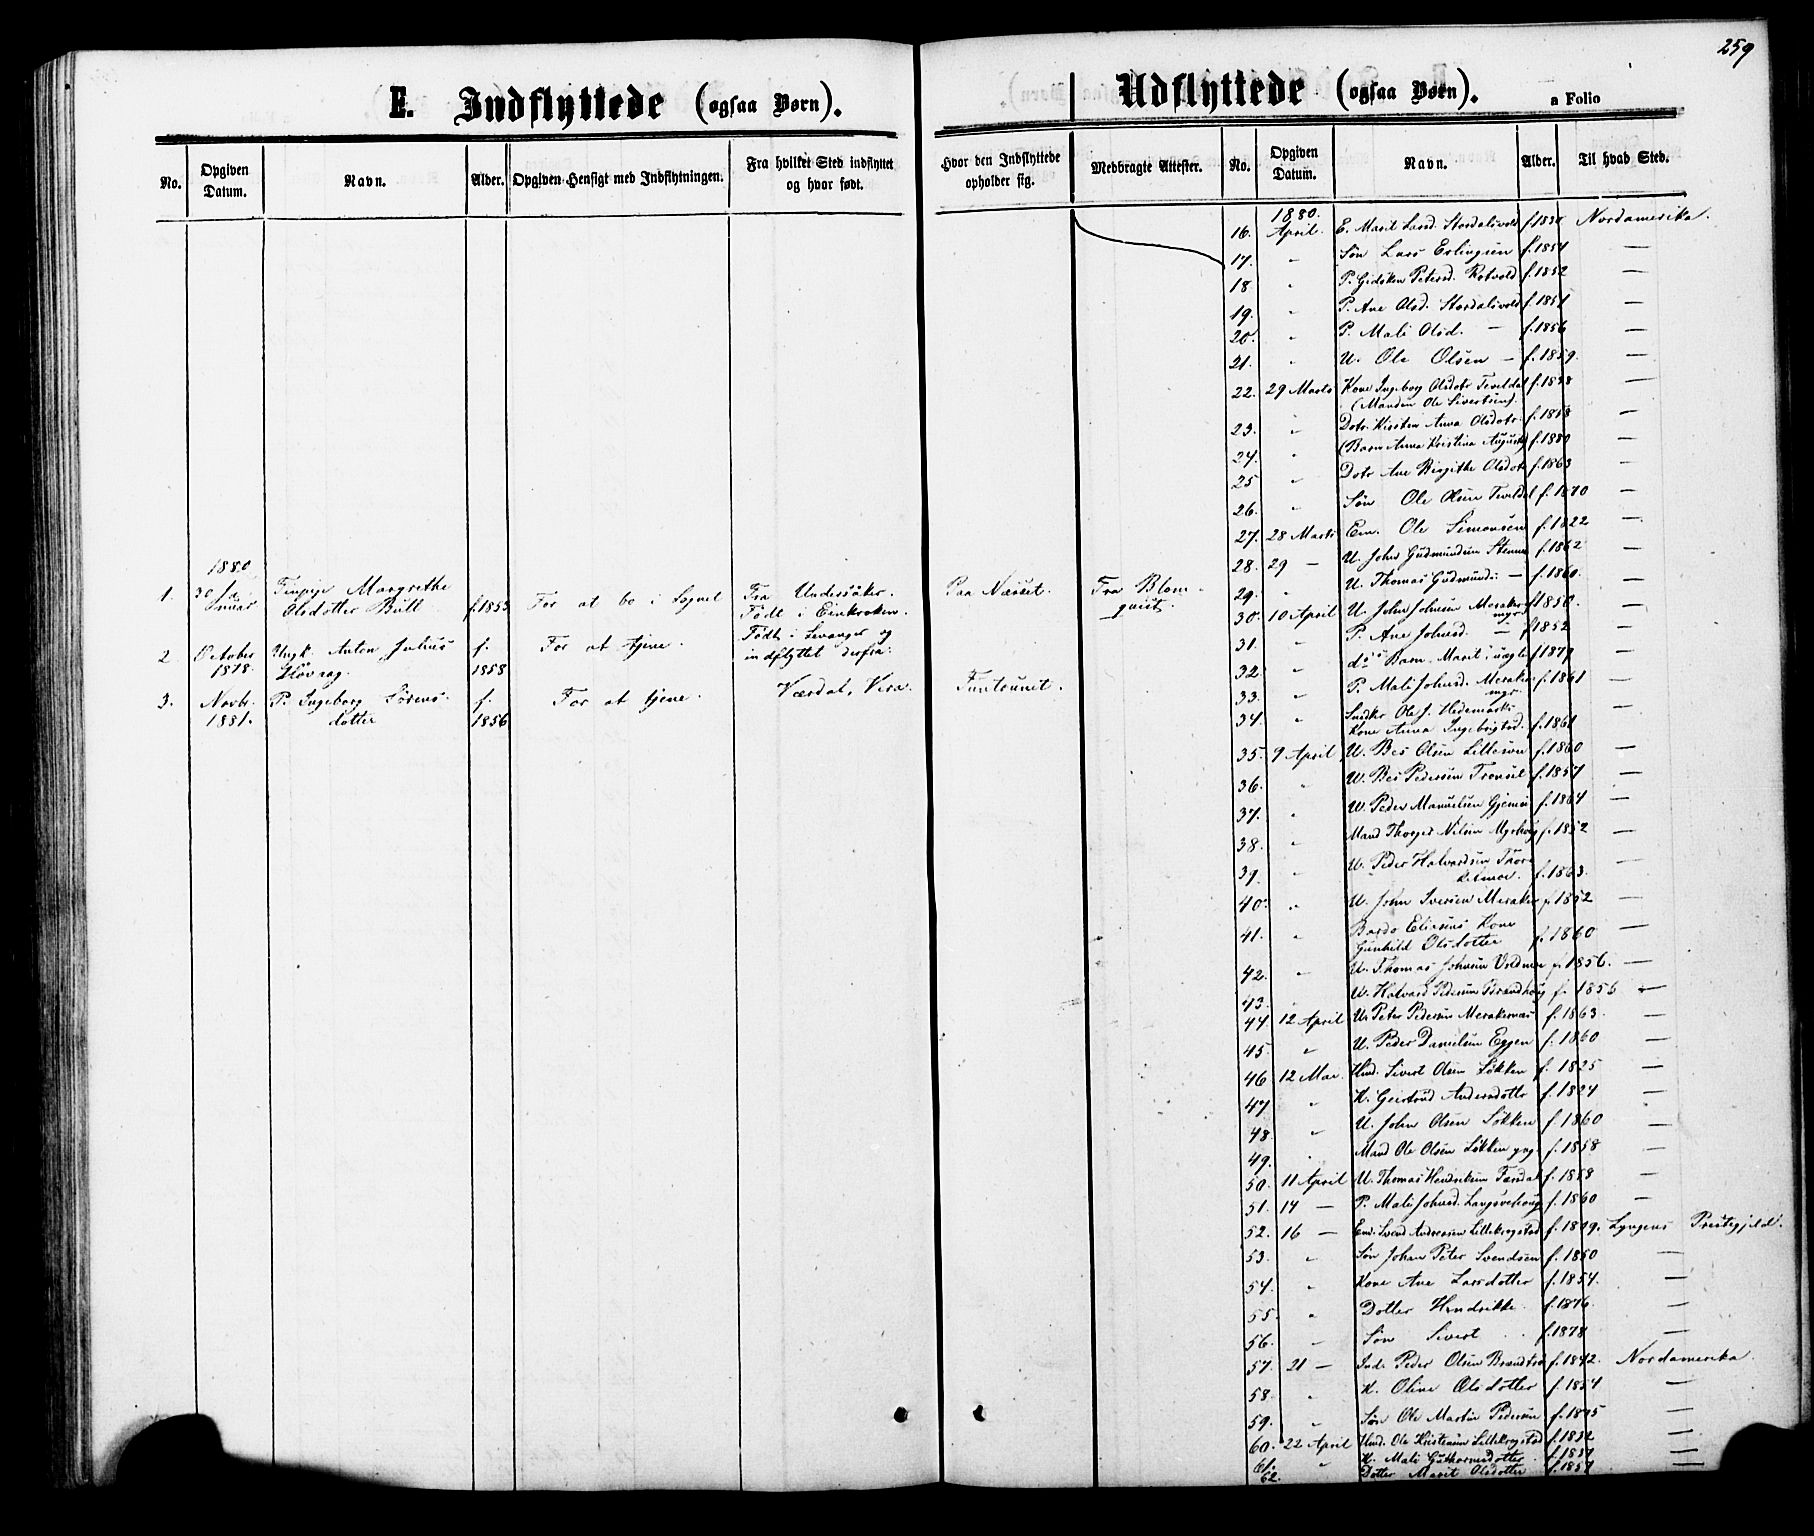 259
E. Indflyttede (ogsaa Børn).
No. Opgiven Datum. Navn. Alder. Opgiven Hensigt med Indflytningen. Fra hvilket Sted indflyttet og hvor født.
1880
1. 30 Ja Margrethe Fra Undersåker.
nuar Olsdotter Bull f. 1853 For at bo i Sognet Født i Einkroken.
2 October Ungk. Anton Julius f. For at tjene. Født i Levanger og
1878 1858 indflyttet derfra.
3. Novbr. P. Ingeborg Sørens f. For at tjene. Værdal, Vera.
1881. dotter 1856
Udflyttede (ogsaa Børn). a Folio
Hvor den Indflyttede opholder sig. Medbragte Attester. No. Opgiven Datum. Navn. Alder. Til hvad Sted.
Paa Næsset. Fra Blom
quist
1880.
16. April. E. Marit Larsd. Stordalsvold f 1830 Nordamerika.
17. " Søn Lars Erlingsen f. 1854 —
18 " P. Gidsken Petersd. Rotvold f. 1852 —
19. " P. Ane Olsd. Stordalsvold f. 1851 —
20. " P. Mali Olsd. — f. 1856 —
21. " U. Ole Olsen — f. 1859. —
22. 29 Marts Kone Ingeborg Olsdotr Teveldal f. 1838 —
(Manden Ole Sivertsen).
23. " Dotr. Kirsten Anna Olsdotr. f. 1858 —
24. " (Barn Anna Kristina Augusta) f. 1880 —
25 " Dotr Ane Birgitte Olsdotr f. 1863 —
26. " Søn Ole Olsen Teveldal f. 1870 —
27. 28 Marts Em. Ole Simonsen f. 1822 —
28. 29 — U. John Gudmundsen f. 1862 —
29. " U. Thomas Gudmunds: — f. 1860. —
30. 10 April U. John Johnsen Meraker f 1850. —
myr
31. " P. Ane Johnsd. — f 1852 —
32. " do's Barn Marit, uægte f 1879 —
33. " P. Mali Johnsd. Meraker f. 1861 —
myr.
34. " Snedker Ole J. Hedemarks —
Kone Anna Ingebrigtsd. f. 1861
35. 9 April U. Bes Olsen Lillesve f. 1860 —
36. " U. Bes Pedersen f. 1857 —
37. " U. Peder Manuelsen f. 1864 —
38. " Mand Nilsen f. 1852 —
39. " U. Peder Halvardsen f. 1863. —
40. " U. John Iversen Meraker f. 1852 —
41. " Bardo Eliesens Kone
Gunhild Olsdotter f. 1860 —
42. " U. Thomas Johnsen f. 1856. —
43. " U. Halvard Pedersen f. 1856 —
44. 12 April U. Peter Pedersen Merakernæs f. 1863. —
45. " U. Peder Danielsen Eggen f. 1860 —
46 12 Mai. Hmd. Sivert Olsen Løkken f. 1825 —
47 " K. Geirtrud Andersdotter f. 1824 —
48. " U. John Olsen Løkken f. 1860 —
49. " Mand Ole Olsen Løkken yng. f. 1858 —
50. 11 April U. Thomas Hendriksen Færdal f. 1858 —
51. 14 — P. Mali Johnsd. f. 1860 —
52. 16 — Em. Svend Andreasen Lillekrogstad f. 1809. Lyngens Prestegjeld.
53. " Søn Johan Peter Svendsen f. 1850 —
54. " Kone Ane Larsdotter f. 1854. —
55. " Dotter Hendrikke. f. 1876. —
56. " Søn Sivert f. 1878 —
57. 21 — Peder Olsen f. 1842. Nordamerika.
58. " K. Oline Olsdotter f. 1854 —
59. " Søn Ole Martin Pedersen f. 1875 —
60. 22 April Hmd. Ole Kristensen Lillekrogstad f. 1832 —
61. " K. Mali Guttormsdotter f. 1837 —
62. Dotter Marit Olsdotter f. 1857 —